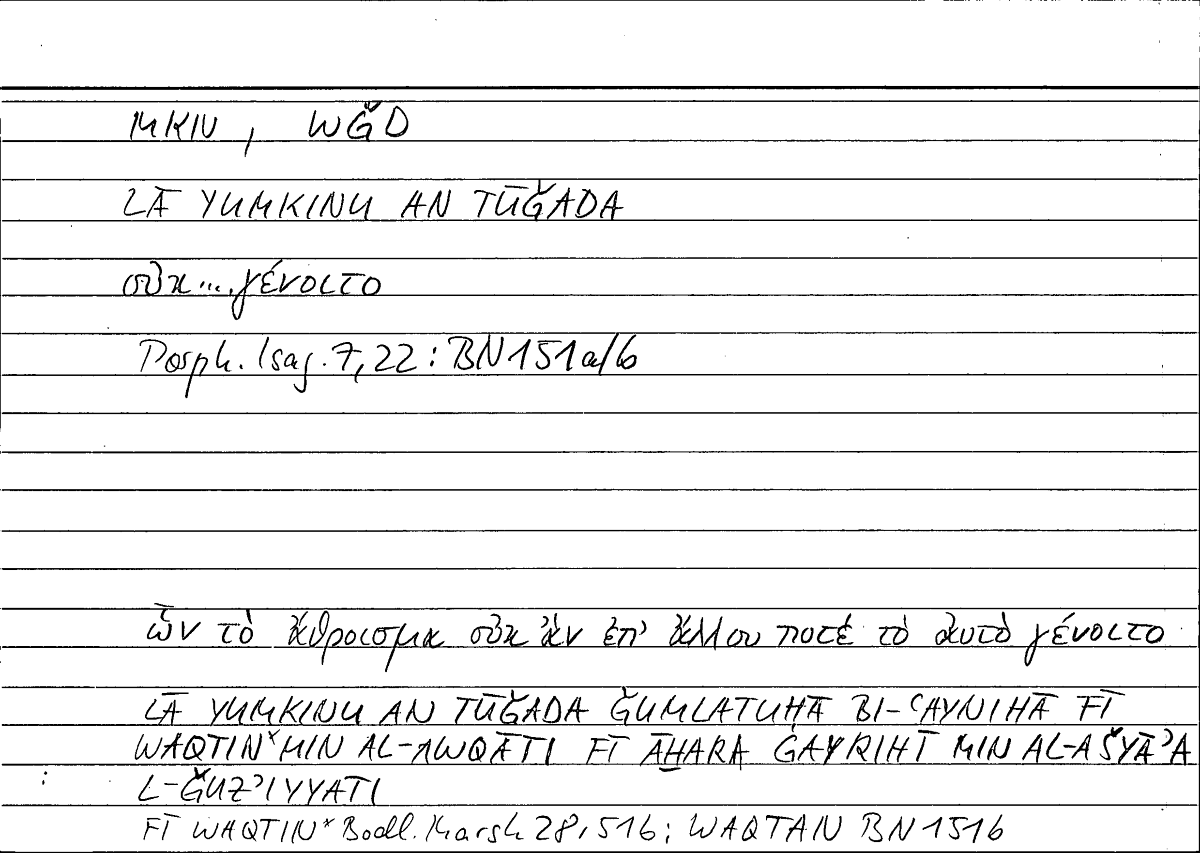 MKN, WǦD
LĀ YUMKINU AN TŪǦADA
οὐκ....γένοιτο
Porph. Isag. 7,22 : BN 151a/b
ὧν τὸ ἄθροισμα οὐκ ἂν ἐπ' ἄλλου ποτέ τὸ αὐτὸ γένοιτο
LĀ YUMKINU AN TŪǦADA ǦUMLATUHĀ BI-ʿAYNIHĀ FĪ
WAQTIN* MIN AL-AWQĀTI FĪ ĀḪARA ĠAYRIHĪ MIN AL-AŠYĀʾA
L-ǦUZʾIYYATI
FĪ WAQTIN* Bodl. Marsh 28, 51b; WAQTAN BN 151b